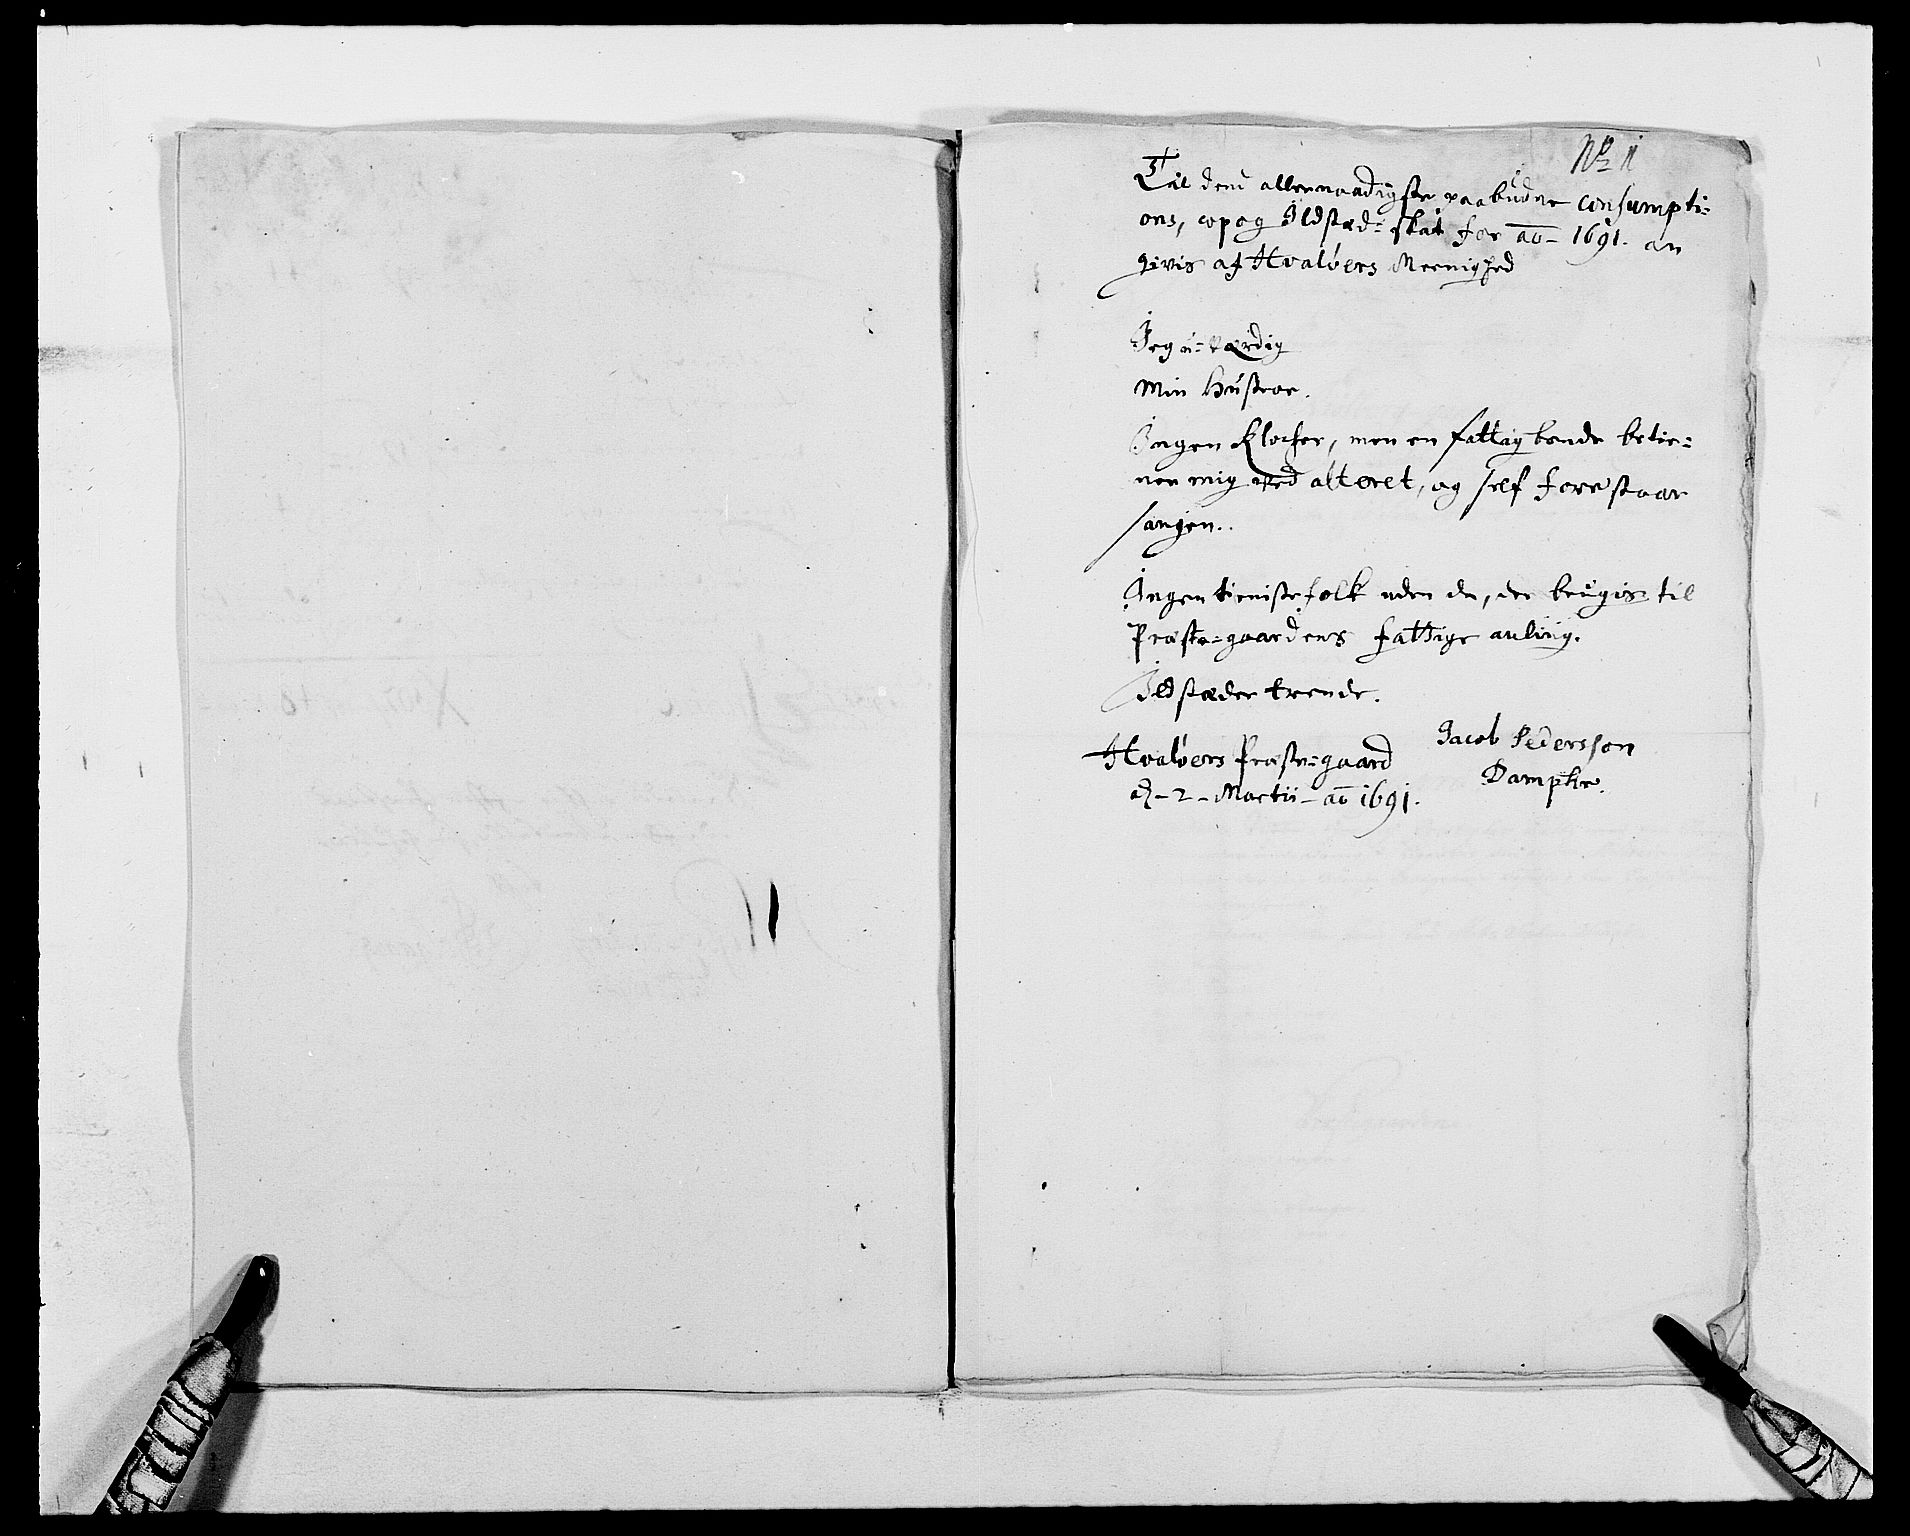 No 1
Til dend allernaadigste paabudne consumpti=
ons, cop og Ildsted= skat for ao 1691. an
givis af Hvaløers Meenighed
Jeg u=værdig
Min hustroe.
Ingen Klocker, men en fattig bonde betie=
ner mig ved alteret, og self forestaar
sangen.
Ingen tieniste folk uden de, der brugis til
Præste=gaardens fattige auling.
Ildstæder trende.
Hvaløers Præste=gaard
d. 2 Martii ao 1691.
Jacob Pedersson
Dampke.